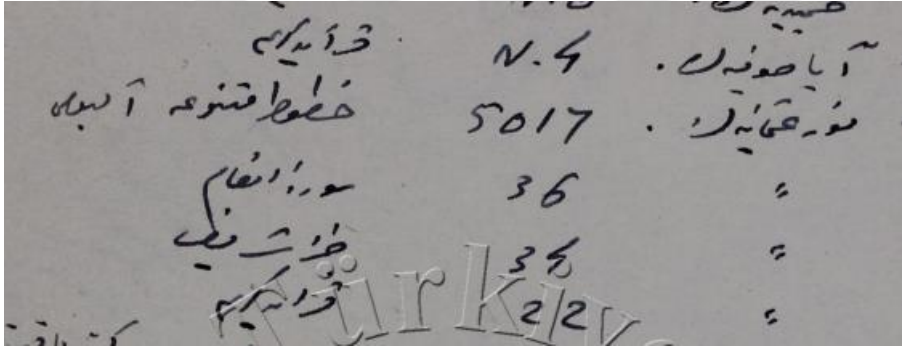 آیاصوفیه ك. N. 4 قرآن كریم
نور عثمانیه ك. 5017 خطوط متنوعه آلبومی
〃 36 سورۀ انعام
〃 34 شریف
〃 22 قرآن كریم
Türkiye